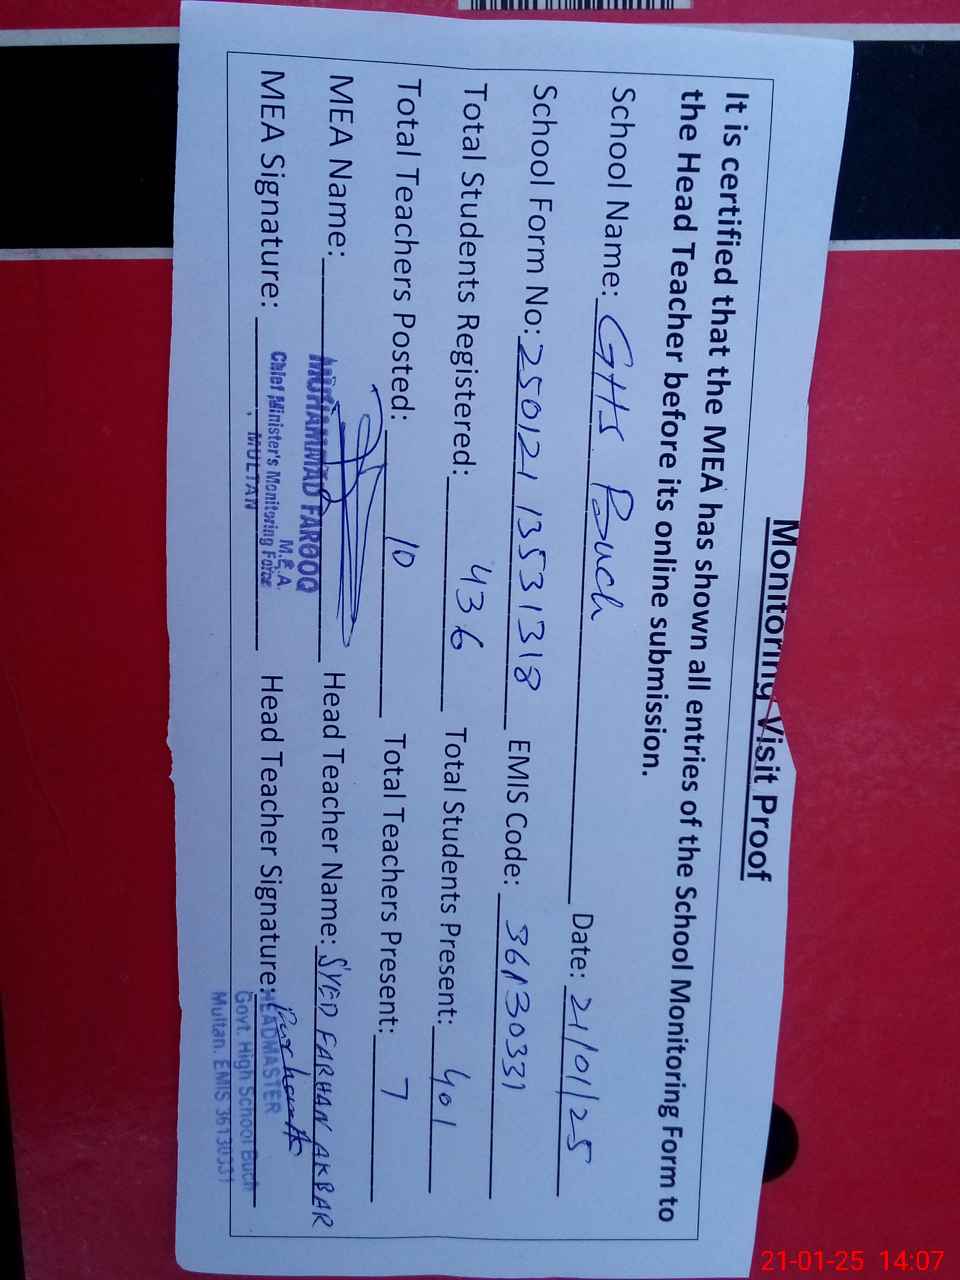 Monitoring Visit Proof
It is certified that the MEA has shown all entries of the School Monitoring Form to
the Head Teacher before its online submission.
School Name: GHS Buch Date: 21/01/25
School Form No: 25012113531318 EMIS Code: 36130331
Total Students Registered: 436 Total Students Present: 401
Total Teachers Posted: 10 Total Teachers Present: 7
MEA Name: Head Teacher Name: SYED FARHAN AKBAR
MUHAMMAD FAROOQ
M.E.A.
MEA Signature: Head Teacher Signature:
Chief Minister's Monitoring Force
MULTAN
HEADMASTER
Govt. High School Buch
Multan. EMIS 36130331
21-01-25 14:07